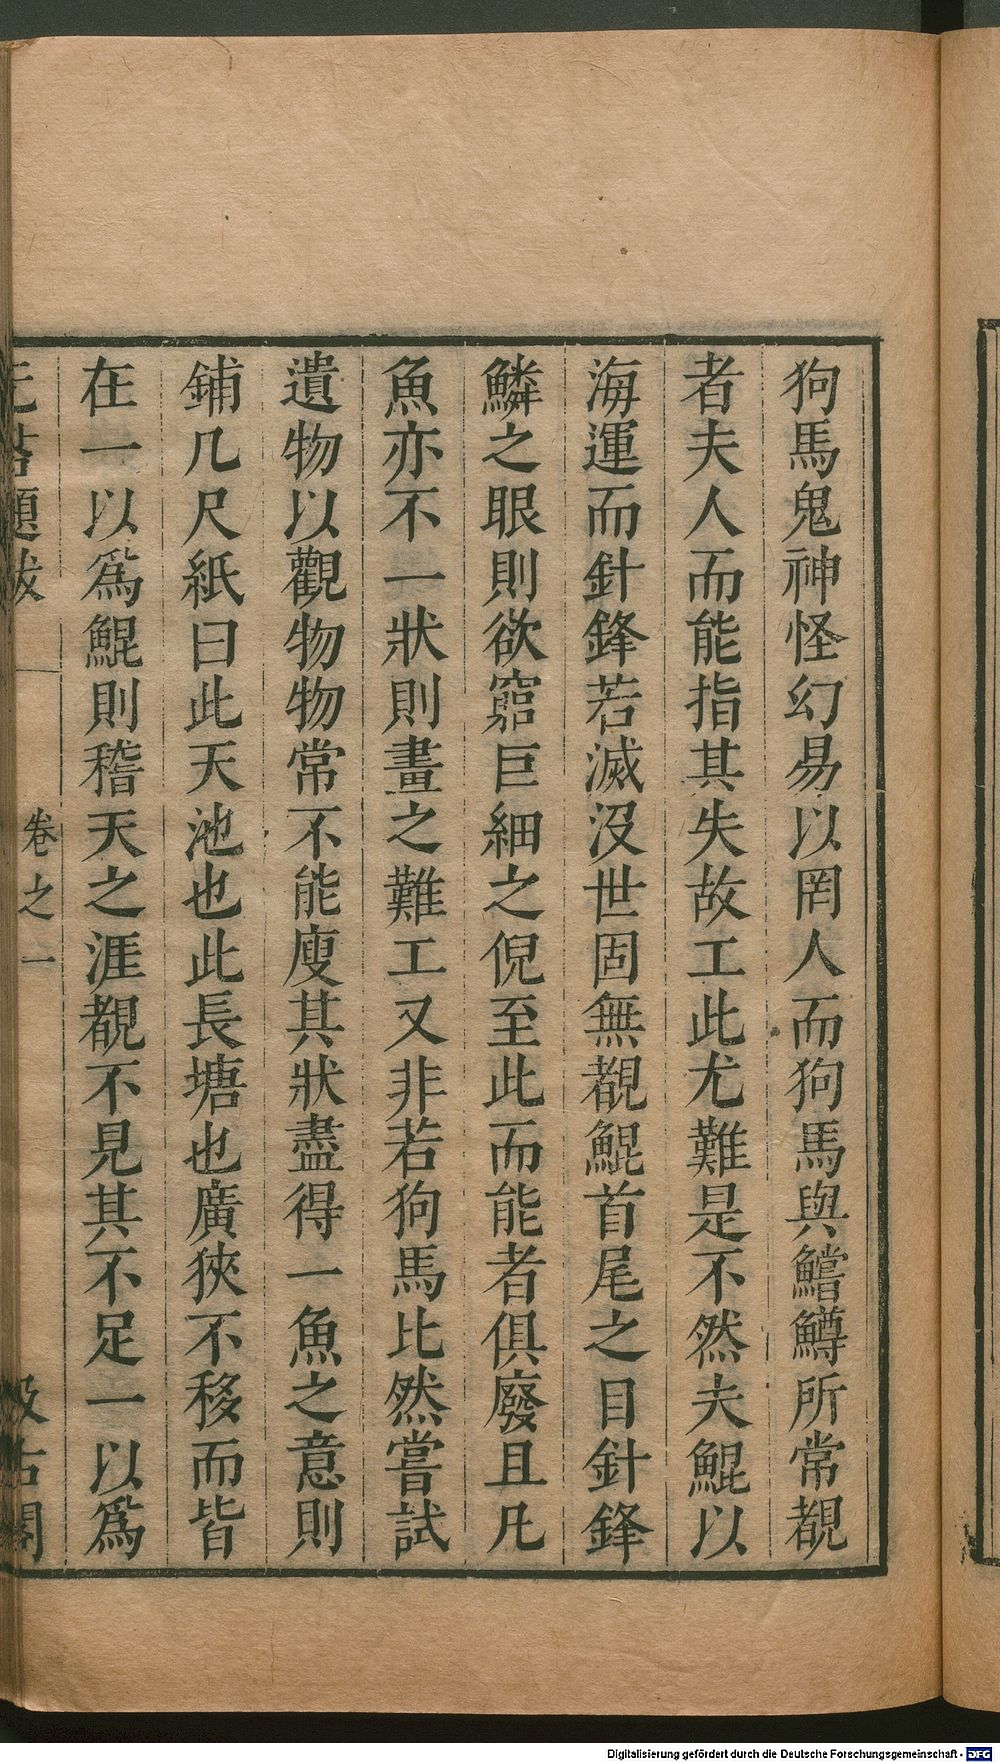 狗馬鬼神怪幻易以罔人而狗馬與鱨鱒所常覩
者夫人而能指其失故工此尤難是不然夫鯤以
海運而針鋒若滅沒世固無覩鯤首尾之目針鋒
鱗之眼則欲窮巨細之倪至此而能者俱廢且凡
魚亦不一狀則畫之難工又非若狗馬比然嘗試
遺物以觀物物常不能廋其狀盡得一魚之意則
鋪几尺紙曰此天池也此長塘也廣狹不移而皆
在一以爲鯤則稽天之涯覩不見其不足一以爲
无咎題跋 卷之一 汲古閣
Digitalisierung gefördert durch die Deutsche Forschungsgemeinschaft - DFG